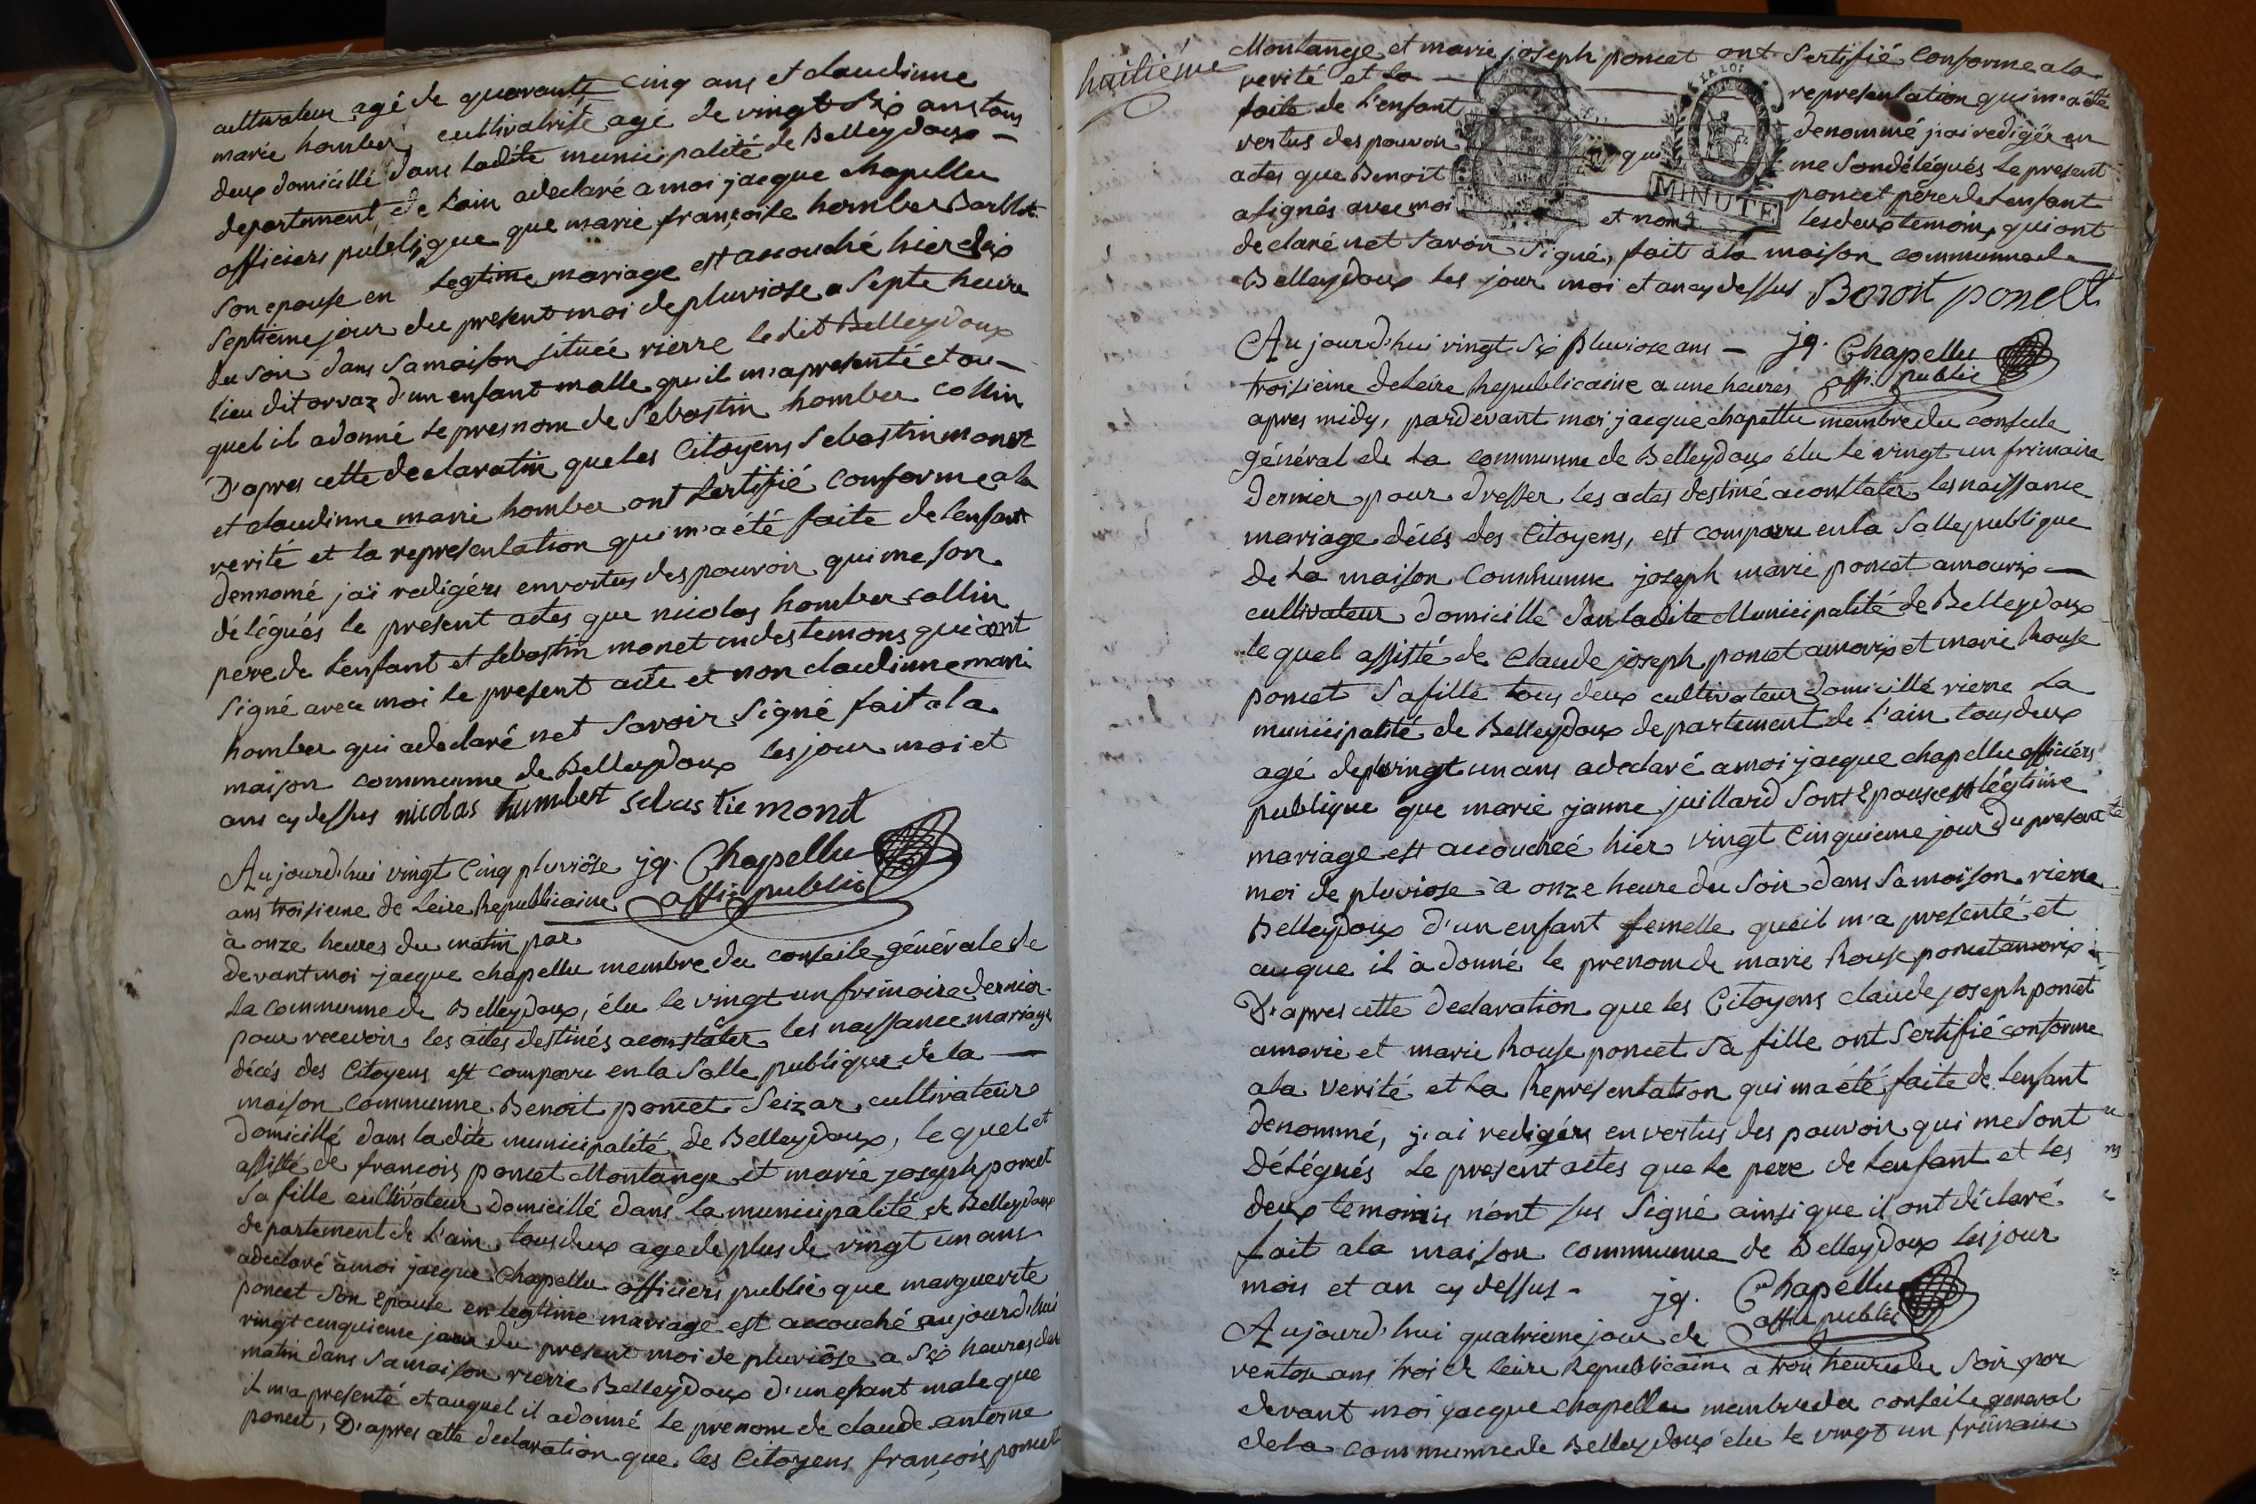 cultivateur agé de quarante cinq ans et claudinne
marie homber, cultivatrise age de vingt Six ans tous
deux domicillé dans ladite municipalité de Belleydoux —
departement de Lain adeclaré a moi jacque chapellu
officiers publique que marie françoise homber Barblet
Son epouse en Legtime mariage est accouché hier dix
Septieme jour du present moi de pluviose a Septe heure
du Soir dans Samaison Situeé rierre ledit Belleydoux
lieu dit orvaz d'un enfant malle qu'il m'apresenté et au —
quel il adonné le presnom de Sebastin homber collin
D'apres cette declaratin que les Citoyens Sebastin monet
et claudinne marie homber ont Sertifié conforme a la
verité et la representation qui m'a été faite de lenfant
dennomé j'ai redigérs envertus des pouvoir qui me son
délégués le present actes que nicolas homber collin
pere de lenfant et Sebastin monet un des temons qui ont
Signé avec moi le present acte et non claudinne marie
homber qui adeclaré net Savoir Signé fait a la
maison communne de Belleydoux les jour moi et
ans cy dessus nicolas humbert sebastie monet
Aujourd'hui vingt Cinq pluviôse jq. Chapellu
ans troisieme de Leire Republicaine offi. public
à onze heures du matin par
devant moi jacque chapellu membre du conseile générale de
La communne de Belleydoux, élu le vingt un frimaire dernier
pour recevoir les actes destinés aconstater les naissance mariage
décés des Citoyens est comparu en la Salle publique de la —
maison communne Benoit poncet Seizar cultivateur
domicillé dans ladite municipalité de Belleydoux, lequel et
assisté de francois poncet Montange et marie joseph poncet
Sa fille cultivateur domicillé dans la municipalité de Belleydoux
departement de L'ain tousdeux age de plus de vingt un ans
adeclaré à moi jacque Chapellu officiers public que marguerite
poncet Son epouse en legtime mariage est accouché aujourd'hui
vingt cinquieme jour du present moi de pluviôse a Six heures du
matin dans Samaison rierre Belleydoux d'un efant male que
il m'a presenté et auquel il adonné le prenom de claude antoine
poncet, D'apres cette declaration que les Citoyens françois poncet
huitiéme
Montange et marie joseph poncet ont Sertifié Conforme a la
verité et la — representation qui m'a été
faite de l'enfant denommé j'ai redigér en
vertus des pouvoir qui me Sondélégués Le present
actes que Benoit poncet pere de Lenfant
a signés avec moi et non les deux temoins qui ont
MINUTE
LA LOI
declaré net Savoir Signé, fait à la maison communne de
Belleydoux les jour moi et an cy dessus Benoit poncet
Aujourd'hui vingt Six pluviose ans — jq. Chapellu
troisieme de Leire Republicaine a une heures offi. public
apres midy, pardevant moi jacque chapellu membre du conseile
général de La communne de Belleydoux élu le vingt un frimaire
dernier pour dresser les actes destiné aconstater les naissance
mariage décés des Citoyens, est comparu en la Salle publique
de La maison Communne joseph marie poncet amourix —
cultivateur domicillé dan ladite Municipalité de Belleydoux
lequel assisté de Claude joseph poncet amorix et marie Rouse
poncet Safille tous deux cultivateur domicillé rierre La
municipalité de Belleydoux departement de L'ain tousdeux
agé deplus vingt un ans adeclaré a moi jacque chapellu officiérs
publique que marie janne juillard Sont Epouse en légtime
mariage est accoucheé hier vingt Cinquieme jour du present
moi de pluviose a onze heure du Soir dans Samaison rierre
Belleydoux d'un enfant femelle queil m'a presenté et
auque il à donné le prenom de marie Rouse poncet amorix
D'apres cette declaration que les Citoyens claude joseph poncet
amorie et marie Rouse poncet Sa fille ont Sertifié conforme
a la verité et La Representation qui ma été faite de lenfant
denommé, j'ai redigérs en vertus des pouvoir qui me Sont
Délégués Le present actes que Le pere de Lenfant et les
deux temoins n'ont Sus Signé ainsi que il ont déclaré
fait a la maison communne de Belleydoux les jour
mois et an cy dessus - jq. Chapellu
Aujourd'hui quatrieme jour de offi. public
ventose ans trois de Leire Republicaine a trois heure du Soir par
devant moi jacque chapellu membre du conseile general
de la communne de Belleydoux élu le vingt un frimaire